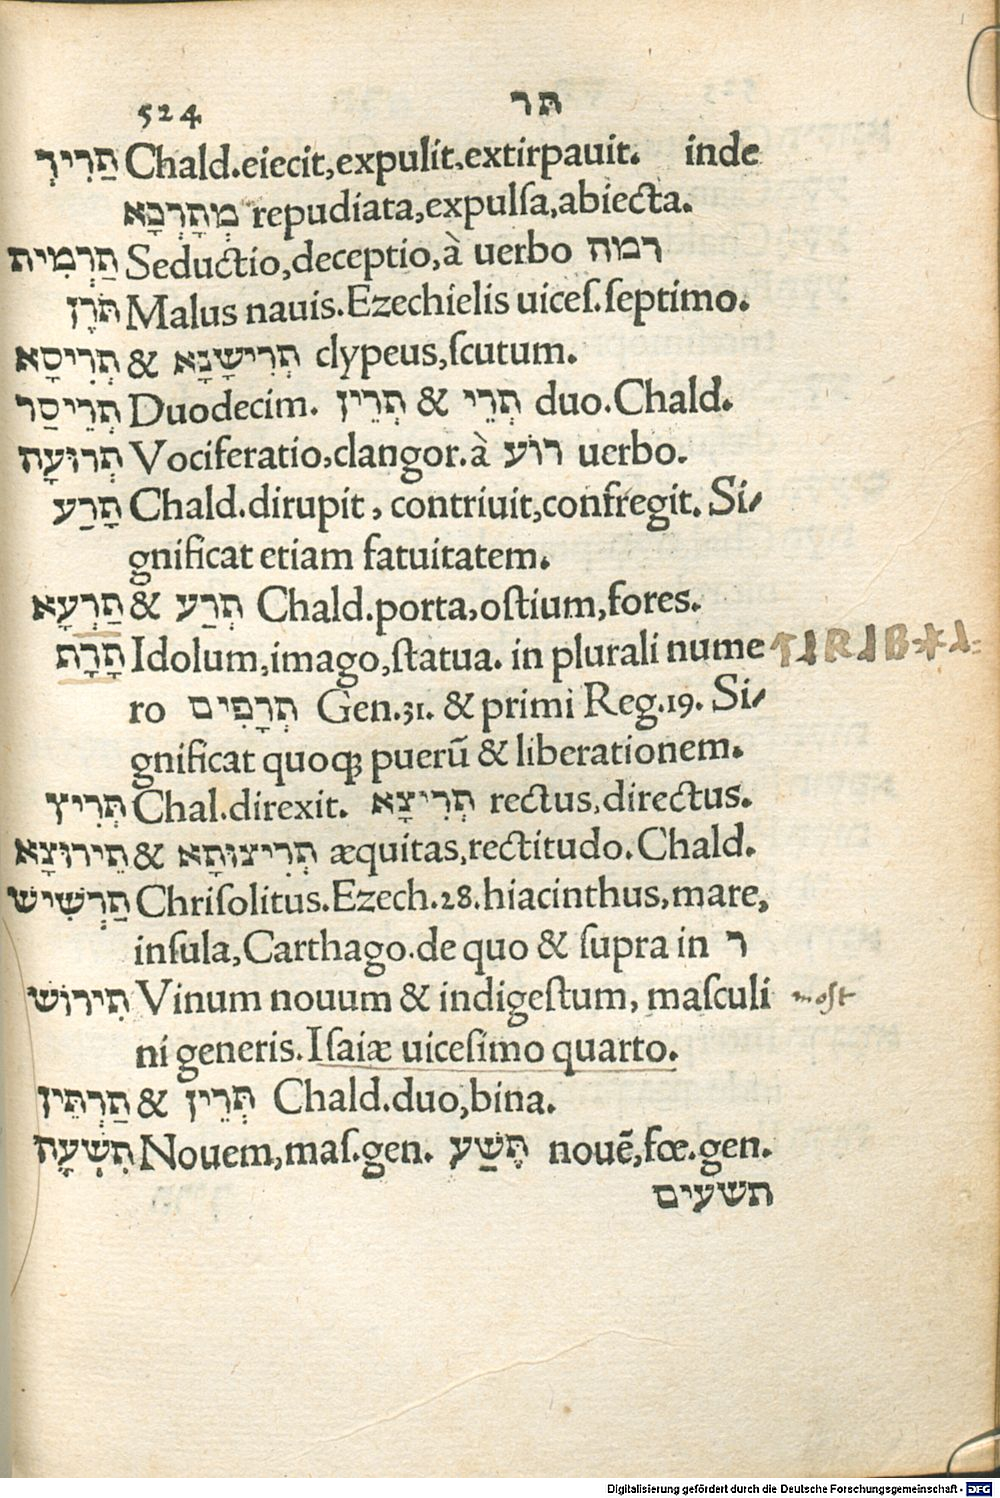 524 תר
תַּרִיךְ Chald.eiecit,expulit,extirpauit. inde
מְתָרְכָא repudiata,expulſa,abiecta.
תַּרְמִית Seductio,deceptio,à uerbo רמה
תֹּרֶן Malus nauis.Ezechielis uiceſ.ſeptimo.
תְּרִיסָא & תְּרִישָנָא clypeus,ſcutum.
תְּרֵיסַר Duodecim. תְּרֵי & תְּרֵין duo.Chald.
תְּרוּעָה Vociferatio,clangor.à רוֹע uerbo.
תָּרַע Chald.dirupit, contriuit,confregit. Si⸗
gnificat etiam fatuitatem.
תַּרְעָא & תְּרַע Chald.porta,oſtium,fores.
תָּרָת Idolum,imago,ſtatua. in plurali nume
ro תְּרָפִים Gen.31. & primi Reg.19. Si⸗
gnificat quoqꝫ puerū & liberationem.
תְּרִיץ Chal.direxit. תְּרִיצָא rectus,directus.
תֵירוּצָא & תְּרִיצוּתָא æquitas,rectitudo.Chald.
תַּרְשִׁישׁ Chriſolitus.Ezech.28.hiacinthus,mare,
inſula,Carthago.de quo & ſupra in ר
תִּירוֹשׁ Vinum nouum & indigeſtum, maſculi most
ni generis.Iſaiæ uiceſimo quarto.
תַּרְתֵּין & תְּרֵין Chald.duo,bina.
תִּשְׁעָה Nouem,maſ.gen. תֶּשַׁע nouē,fœ.gen.
תשעים
Digitalisierung gefördert durch die Deutsche Forschungsgemeinschaft - DFG